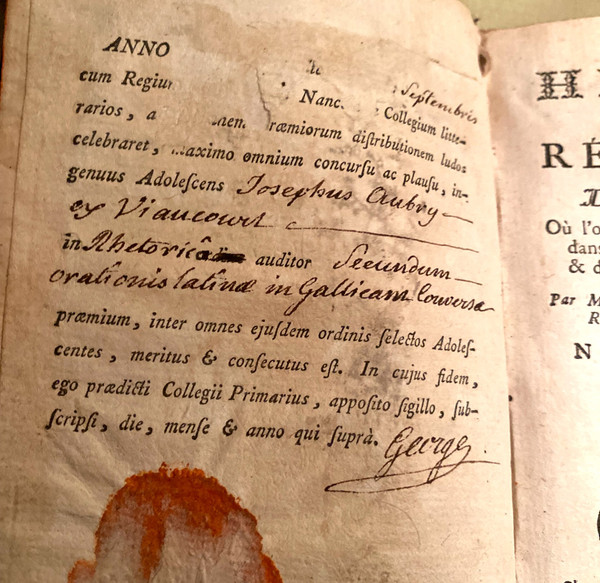 ANNO Septembris
cum Regium Nanc. Collegium litte-
rarios, a præmiorum diſtributionem ludos
celebraret, maximo omnium concurſu ac plauſu, in-
genuus Adoleſcens Josephus Aubry
ex Viaucourt
in Rhetoricâ auditor Secundum
orationis latinæ in Gallicam Conversæ
præmium, inter omnes ejuſdem ordinis ſelectos Adoleſ-
centes, meritus & conſecutus eſt. In cujus fidem,
ego prædicti Collegii Primarius, appoſito ſigillo, ſub-
ſcripſi, die, menſe & anno qui ſuprà. George
H
RÉ
Où l'o
dans
& d
Par M
R
N